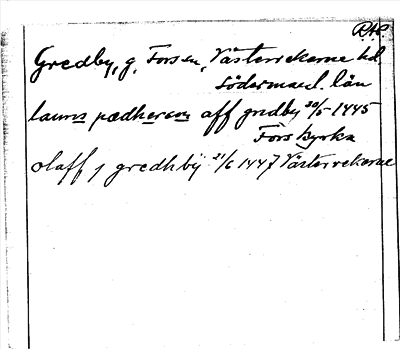 RAP.
Gredby, g, Forsen, Västerrekarne hd
Södermanl. län
laurns pædherson aff gredby 20/5 1445
Fors kyrka
olaff j gredhby 21/6 1447 Västerrekarne